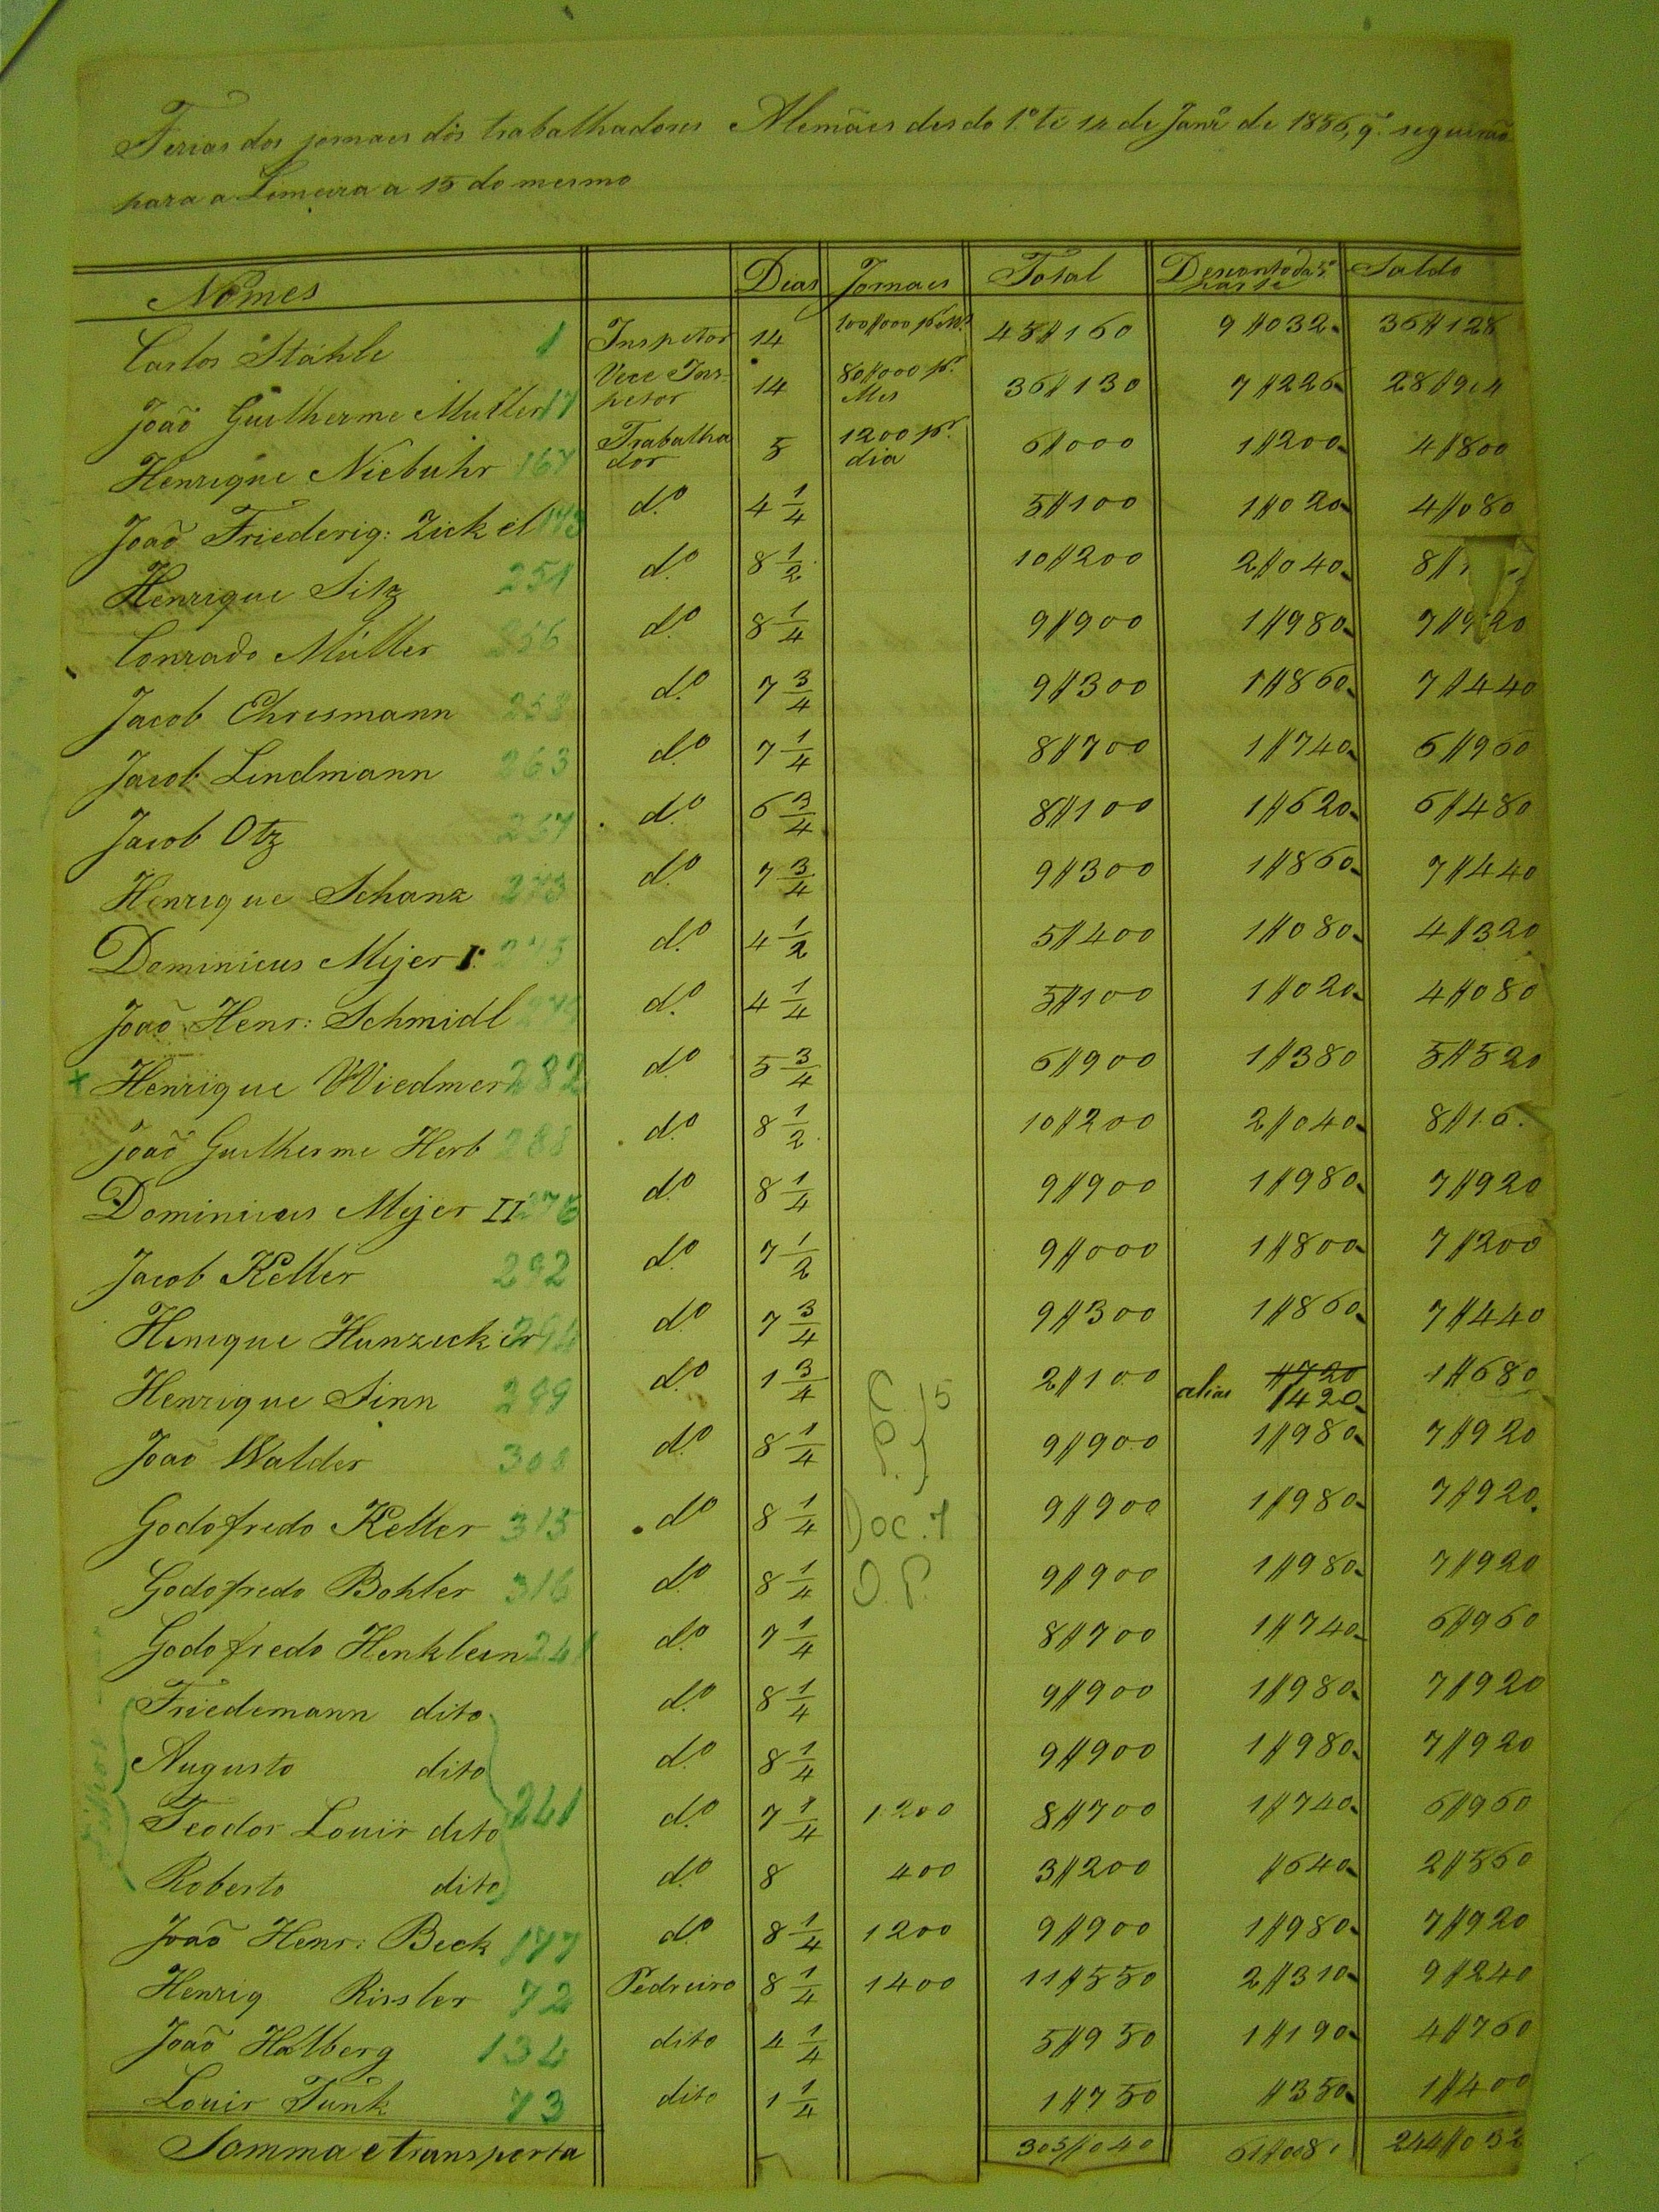 Ferias dos jornaes dos trabalhadores Alemães des do 1º té 14 de Janrº de 1856, q. seguirão
para a Limeira a 15 do mesmo
Nomes Dias Jornaes Total Desconto da 5ª parte Saldo
Carlos Stahle 1 Inspetor 14 100$000 45$160 9$032 36$128
João Guilherme Muller 17 Vece Inspetor 14 80$000 pr. Mes 36$130 7$226 28$904
Henrique Niebuhr 167 Trabalhador 5 1200 pr. dia 6$000 1$200 4$800
João Friederig: Zickel 173 dº 4 1/4 5$100 1$020 4$080
Henrique Sitz 251 dº 8 1/2 10$200 2$040
Conrado Müller 256 dº 8 1/4 9$900 1$980 7$920
Jacob Ehrismann 258 dº 7 3/4 9$300 1$860 7$440
Jacob Lindmann 263 dº 7 1/4 8$700 1$740 6$960
Jacob Otz 267 dº 6 3/4 8$100 1$620 6$480
Henrique Schanz 273 dº 7 3/4 9$300 1$860 7$440
Dominicus Mejer I. 275 dº 4 1/2 5$400 1$080 4$320
João Henr: Schmidl dº 4 1/4 5$100 1$020 4$080
+ Henrique Wiedmer 282 dº 5 3/4 6$900 1$380 5$520
João Guilherme Herb 288 dº 8 1/2 10$200 2$040
Dominicus Mejer II 276 dº 8 1/4 9$900 1$980 7$920
Jacob Keller 292 dº 7 1/2 9$000 1$800 7$200
Henrique Hunzicker 294 dº 7 3/4 9$300 1$860 7$440
Henrique Sinn 299 dº 1 3/4 2$100 $720 alias $420 1$680
João Walder 308 dº 8 1/4 9$900 1$980 7$920
Godofredo Keller 315 dº 8 1/4 9$900 1$980 7$920
Godofredo Bohler 316 dº 8 1/4 9$900 1$980 7$920
Godofredo Henklein 241 dº 7 1/4 8$700 1$740 6$960
Friedemann dito dº 8 1/4 9$900 1$980 7$920
Augusto dito dº 8 1/4 9$900 1$980 7$920
Teodor Louis dito 241 dº 7 1/4 1200 8$700 1$740 6$960
Roberto dito dº 8 400 3$200 $640 2$560
João Henr: Beck 177 dº 8 1/4 1200 9$900 1$980 7$920
Henrig Rissler 72 Pedreiro 8 1/4 1400 11$550 2$310 9$240
João Halberg 134 dito 4 1/4 5$950 1$190 4$760
Louis Funk 73 dito 1 1/4 1$750 $350 1$400
Somma e transporta 305$040 61$008 244$032
C. 15
P. 5
Doc. 7
O. P.